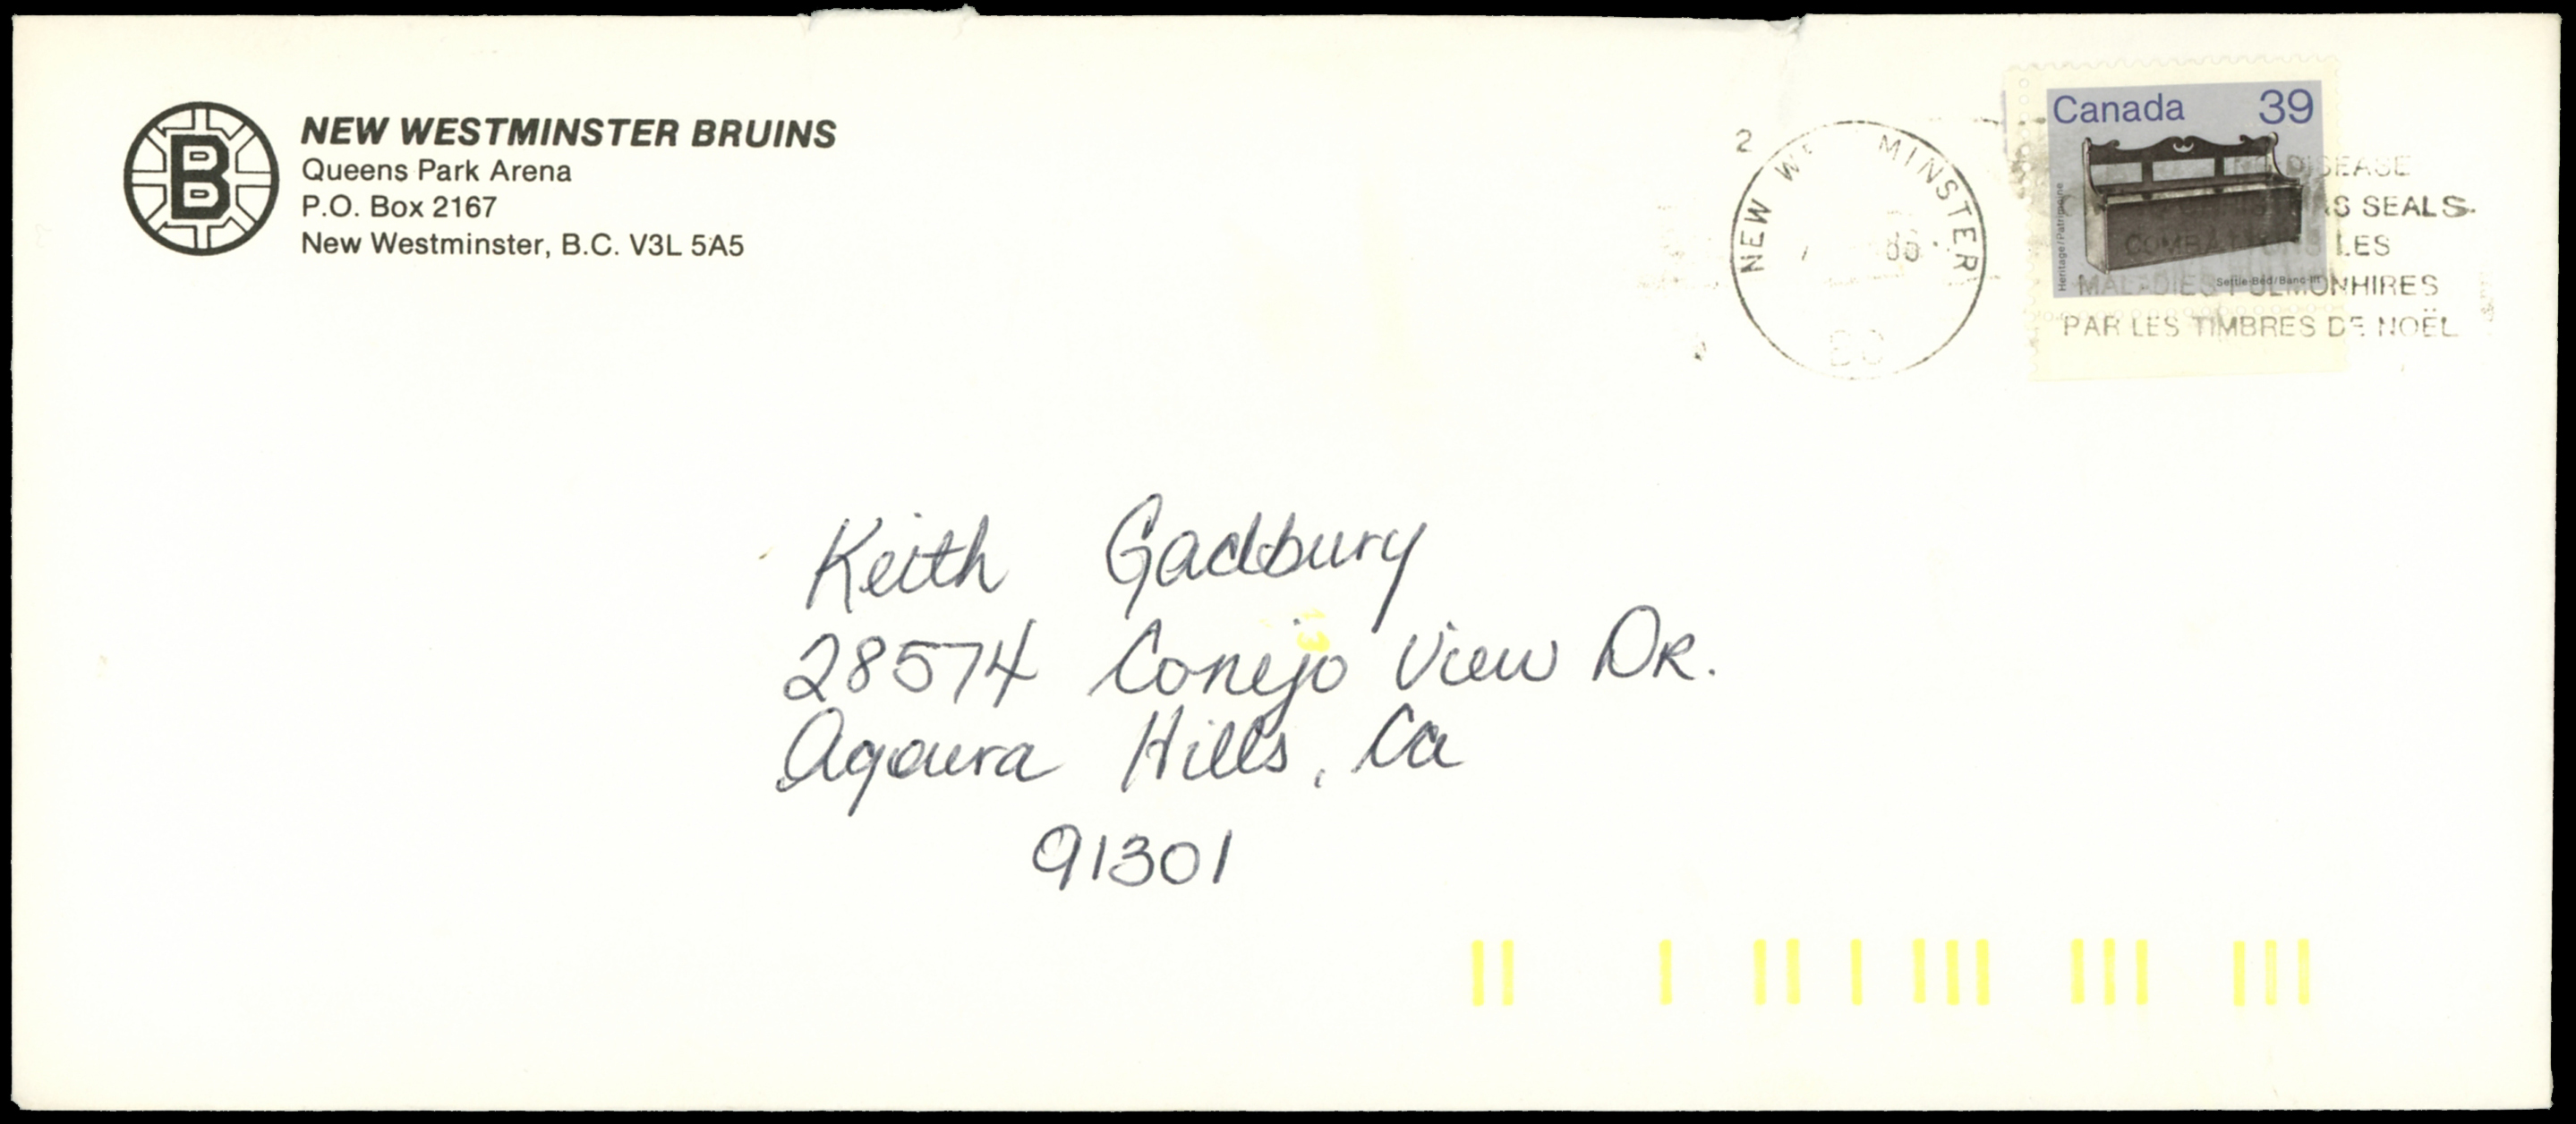 B
NEW WESTMINSTER BRUINS
Queens Park Arena
P.O. Box 2167
New Westminster, B.C. V3L 5A5
2
NEW WE MINSTER
86
BC
Canada 39
Heritage/Patrimoine
Settle-Bed/Banc-lit
DISEASE
AS SEALS
COMBATTONS LES
MALADIES PULMONHIRES
PAR LES TIMBRES DE NOËL
Keith Gadbury
28574 Conejo View DR.
Agoura Hills, Ca
91301
13